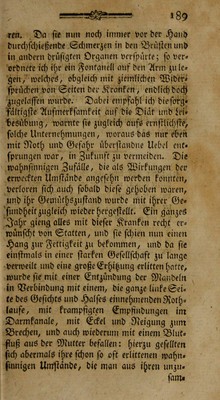 189
ren. Da sie nun noch immer vor der Hand
durchschießende Schmerzen in den Brüsten und
in andern drüsigten Organen verspürte; so ver-
ordnete ich ihr ein Fontanell auf den Arm zu le-
gen, welches, obgleich mit ziemlichen Wider-
sprüchen von Seiten der Kranken, endlich doch
zugelassen wurde. Dabei empfahl ich die sorg-
fältigste Aufmerksamkeit auf die Diät und Lei-
besübung, warnte sie zugleich aufs ernstlichste,
solche Unternehmungen, woraus das nur eben
mit Noth und Gefahr überstandne Uebel ent-
sprungen war, in Zukunft zu vermeiden. Die
wahnsinnigen Zufälle, die als Wirkungen der
erweckten Umstände angesehn werden konnten,
verloren sich auch sobald diese gehoben waren,
und ihr Gemüthszustand wurde mit ihrer Ge-
sundheit zugleich wieder hergestellt. Ein ganzes
Jahr gieng alles mit dieser Kranken recht er-
wünscht von Statten, und sie schien nun einen
Hang zur Fettigkeit zu bekommen, und da sie
einstmals in einer starken Gesellschaft zu lange
verweilt und eine große Erhitzung erlitten hatte,
wurde sie mit einer Entzündung der Mandeln
in Verbindung mit einem, die ganze linke Sei-
te des Gesichts und Halses einnehmenden Roth-
laufe, mit krampfigten Empfindungen im
Darmkanale, mit Eckel und Neigung zum
Brechen, und auch wiederum mit einem Blut-
fluß aus der Mutter befallen: hierzu gesellten
sich abermals ihre schon so oft erlittenen wahn-
sinnigen Umstände, die man aus ihren unzu-
sam-